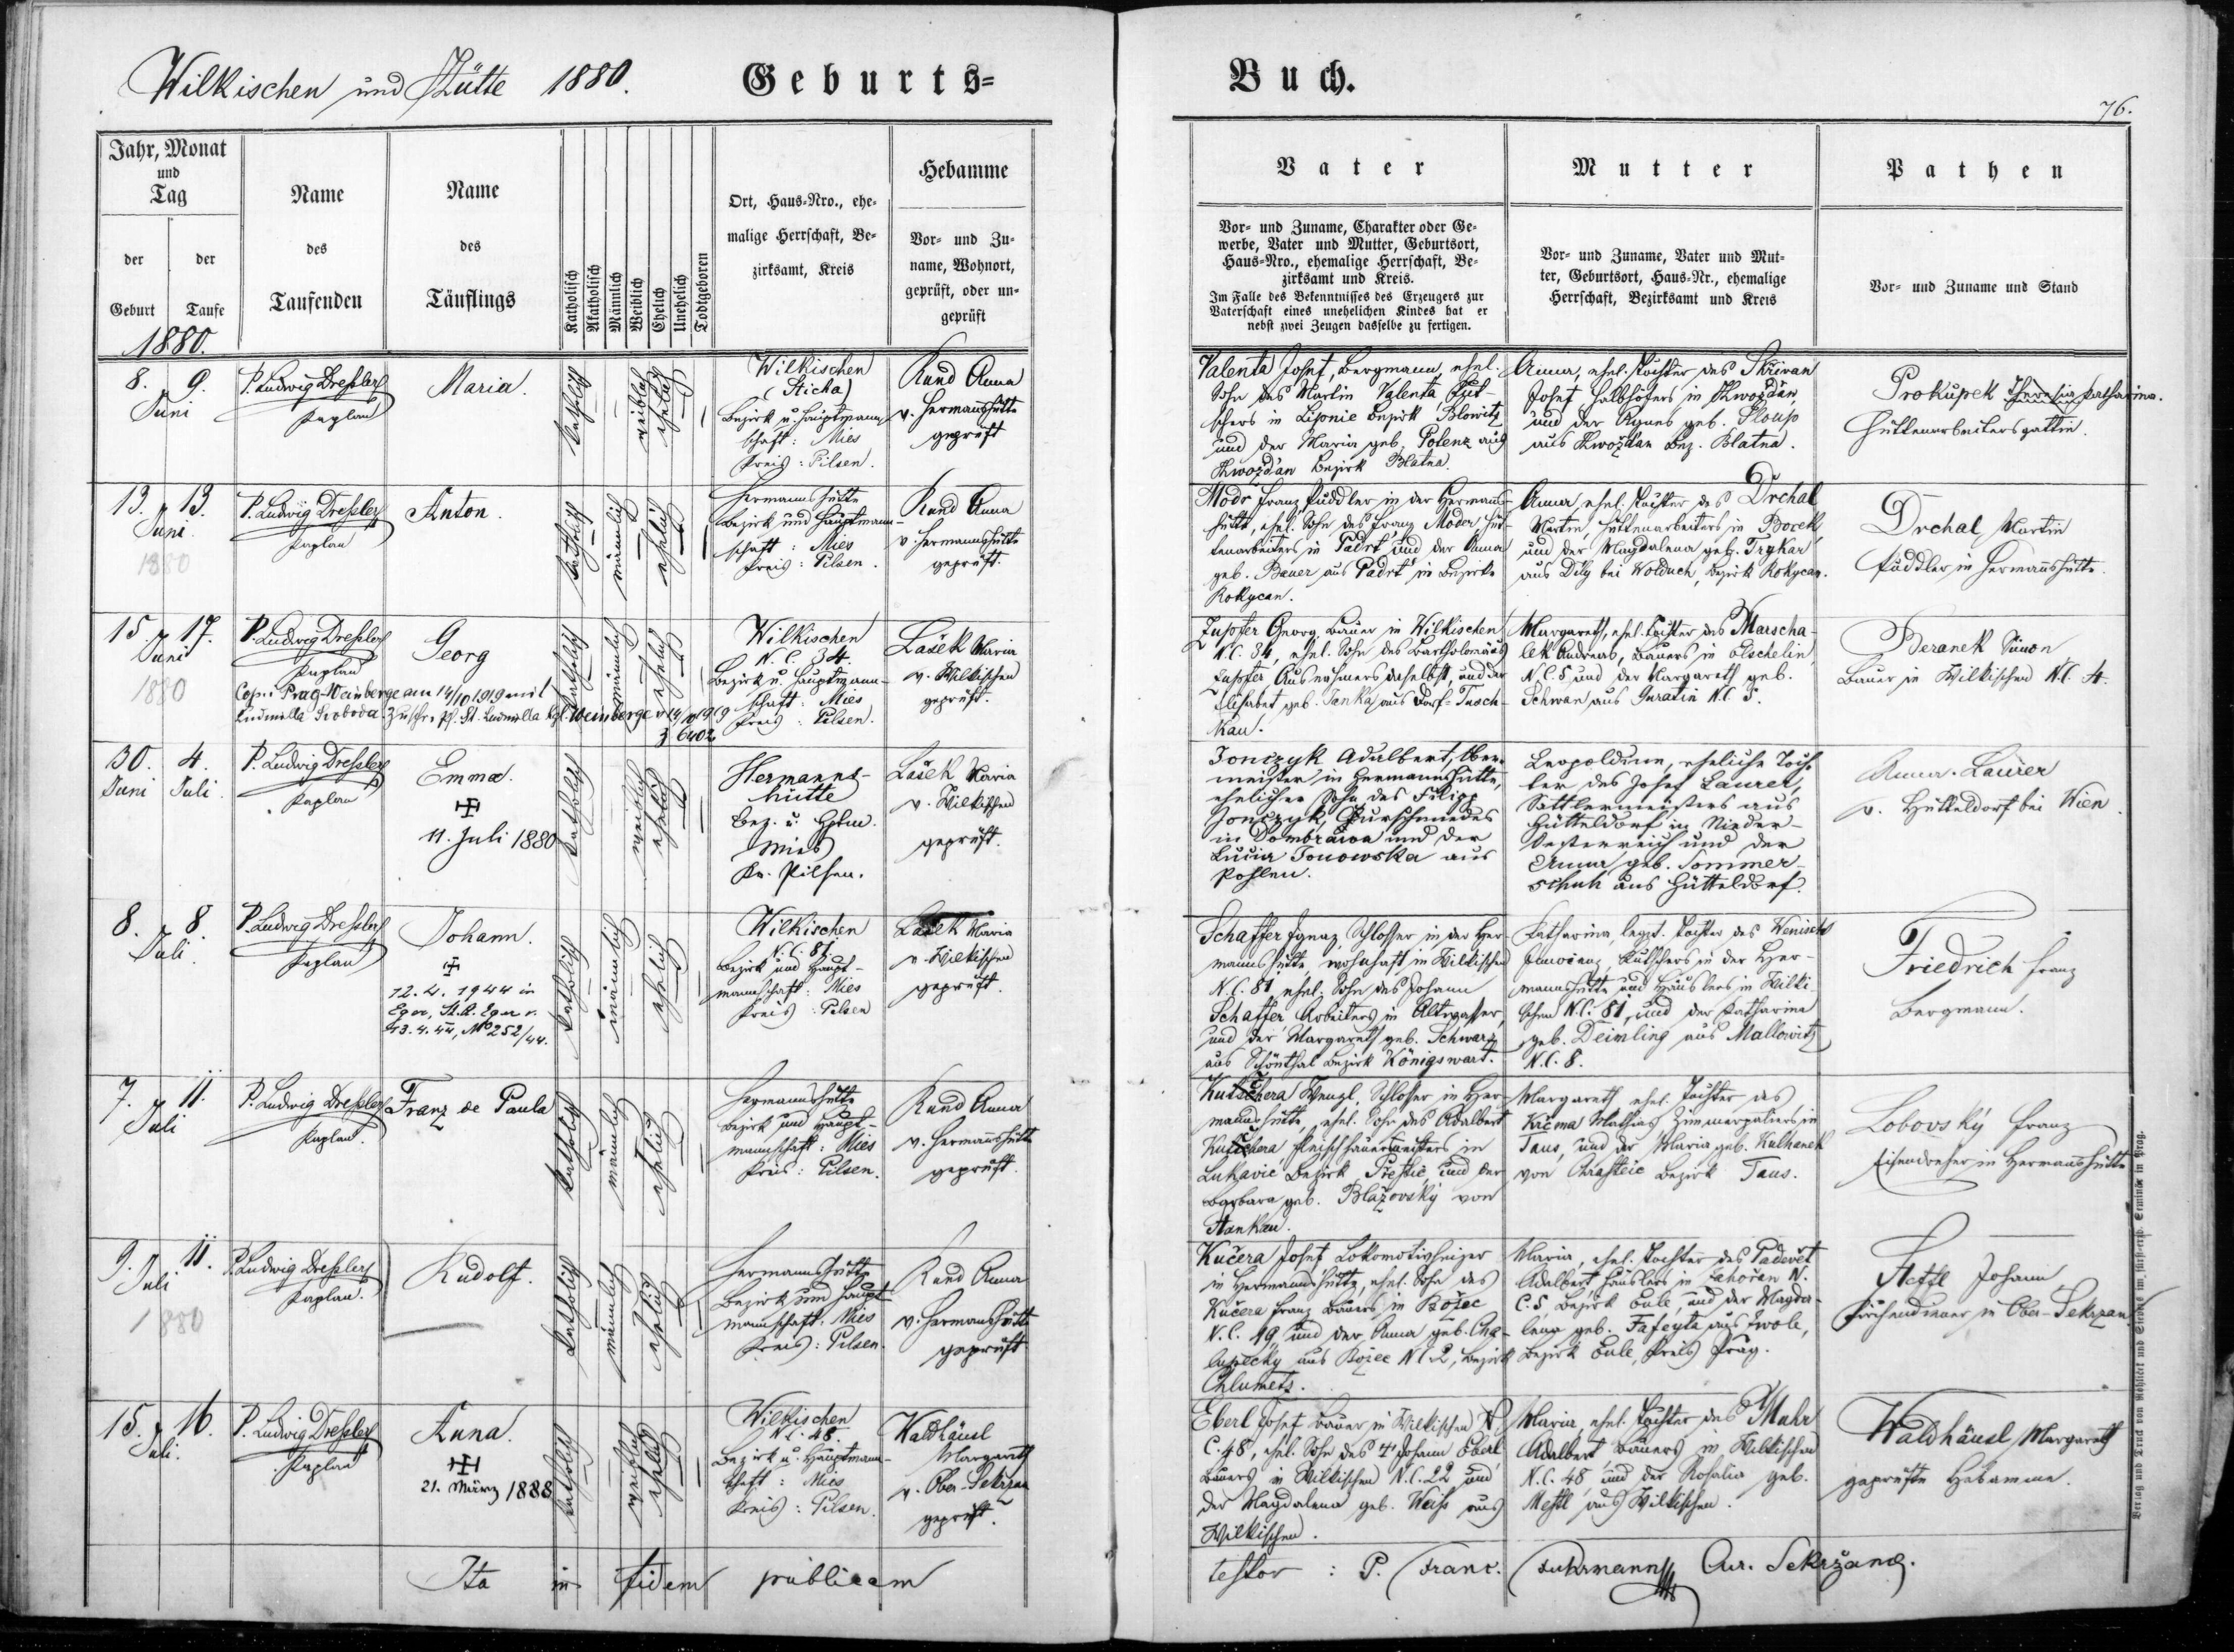 Wilkischen und Hütte 1880.
Geburts=
Buch.
76.
Jahr, Monat
und
Tag
der
Geburt
der
Taufe
1880.
Name
des
Taufenden
Name
des
Täuflings
Katholisch
Akatholisch
Männlich
Weiblich
Ehelich
Unehelich
Todtgeboren
Ort, Haus=Nro., ehe=
malige Herrschaft, Be=
zirksamt, Kreis
Hebamme
Vor= und Zu=
name, Wohnort,
geprüft, oder un=
geprüft
Vater
Vor= und Zuname, Charakter oder Ge=
werbe, Vater und Mutter, Geburtsort,
Haus=Nro., ehemalige Herrschaft, Be=
zirksamt und Kreis.
Im Falle des Bekenntnisses des Erzeugers zur
Vaterschaft eines unehelichen Kindes hat er
nebst zwei Zeugen dasselbe zu fertigen.
Mutter
Vor= und Zuname, Vater und Mut=
ter, Geburtsort, Haus=Nr., ehemalige
Herrschaft, Bezirksamt und Kreis
Pathen
Vor= und Zuname und Stand
8. 9.
Juni
P. Ludwig Dreßler
Kaplan
Maria.
katholisch
weiblich
ehelich
Wilkischen
(Sticha)
Bezirk u. Hauptmann
schaft: Mies
Kreis: Pilsen.
Rund Anna
v. Hermannshütte
geprüft
Valenta Josef, Bergmann, ehel.
Sohn des Martin Valenta
in Liponic Bezirk Blowitz
und der Maria geb. Polenz aus
Hwoždan Bezirk Blatna.
Anna, ehel. Tochter des Skřivan
Josef, Halbhöfers in Hwoždan,
und der Agnes geb. Sloup
aus Hwoždan Bez. Blatna.
Prokupek Theresia Katharina.
Hüttenarbeitersgattin.
13. 13.
Juni
1880
P. Ludwig Dreßler
Kaplan
Anton.
katholisch
männlich
ehelich
Hermannshütte
Bezirk und Hauptmann-
schaft: Mies
Kreis: Pilsen.
Rund Anna
v. Hermannshütte
geprüft.
Modr Franz Puddler in der Hermanns-
hütte, ehel. Sohn des Franz Moder, Hüt-
tenarbeiters in Padrť und der Anna
geb. Bauer aus Padrť in Bezirke
Rokycan.
Anna, ehel. Tochter des Drchal
Martin, Hüttenarbeiters in Borek
und der Magdalena geb. Trykar
aus Dily bei Wolduch, Bezirk Rokycan.
Drchal, Martin
Puddler in Hermannshütte.
15. 17.
Juni
1880
P. Ludwig Dreßler
Kaplan
Georg
Cop.: Prag-Weinberge am 14/10 1919 mit
Ludmilla Svoboda. Zuschr. Pf. St. Ludmilla kgl. Weinberge v. 14/10 1919
Z 6402
katholisch
männlich
ehelich
Wilkischen
N. C. 34
Bezirk u. Hauptmann-
schaft: Mies
Kreis: Pilsen.
Lašek Maria
v. Wilkischen
geprüft.
Zupfer Georg, Bauer in Wilkischen
N.C. 34, ehel. Sohn des Bartholomäus
Zupfer Ausnehmers daselbst, und der
Elisabet geb. Janka aus Dorf-Tusch-
kau.
Margareth, ehel. Tochter des Marscha-
lek Andreas, Bauers in Elschelin
N.C. 5 und der Margareth geb.
Schwan aus Guratin N.C. 5.
Beranek Simon
Bauer in Wilkischen N.C. 4.
30. 4.
Juni Juli
P. Ludwig Dreßler
Kaplan
Emma.
11. Juli 1880
katholisch
weiblich
ehelich
Hermanns-
hütte
Bez. u. Hptm.
Mies
Kr. Pilsen.
Lašek Maria
v. Wilkischen
geprüft.
Jonczyk Adalbert, Ober-
meister in Hermannshütte,
ehelicher Sohn des Filipp
Jonczyk,
in Dombrawa und der
Lucia Jonowska aus
Pohlen.
Leopoldine, eheliche Toch-
ter des Josef Laurer,
Sattlermeisters aus
Hütteldorf in Nieder-
Oesterreich und der
Anna geb. Sommer-
schuh aus Hütteldorf.
Anna Laurer
v. Hütteldorf bei Wien.
8. 8.
Juli
P. Ludwig Dreßler
Kaplan
Johann.
12. 4. 1944 in
Eger, St.A. Eger v.
13. 4. 44, Nº 252/44.
katholisch
männlich
ehelich
Wilkischen
N.C. 81
Bezirk und Haupt-
mannschaft: Mies
Kreis: Pilsen
Lašek Maria
v. Wilkischen
geprüft.
Schaffer Ignaz, Schlosser in der Her-
mannshütte, wohnhaft in Wilkischen
N.C. 81, ehel. Sohn des Johann
Schaffer Arbeiters in Altwasser,
und der Margareth geb. Schwarz
aus Schönthal Bezirk Königswart.
Katharina, legit. Tochter des Wenisch
in der Her-
mannshütte und Häuslers in Wilki-
schen N.C. 81, und der Katharina
geb. Deimling aus Mallowitz
N.C. 8.
Friedrich Franz
Bergmann.
7. 11.
Juli
P. Ludwig Dreßler
Kaplan.
Franz de Paula
katholisch
männlich
ehelich
Hermannshütte
Bezirk und Haupt-
mannschaft: Mies
Kreis: Pilsen.
Rund Anna
v. Hermannshütte
geprüft.
Kutschera Wenzl, Schlosser in Her-
mannshütte, ehel. Sohn des Adalbert
Kutschera Fleischhauermeisters in
Lukavic Bezirk Přestic, und der
Barbara geb. Blažovský von
Stankau.
Margareth ehel. Tochter des
Krčma Mathias Zimmerpaliers in
Taus, und der Maria geb. Kulhanek
von Chrastic Bezirk Taus.
Lobovský Franz
Eisendreher in Hermannshütte
9. 11.
Juli
1880
P. Ludwig Dreßler
Kaplan.
Rudolf.
katholisch
männlich
ehelich
Hermannshütte
Bezirk und Haupt-
mannschaft: Mies
Kreis: Pilsen.
Rund Anna
v. Hermannshütte
geprüft
Kučera Josef Lokomotivheizer
in Hermannshütte, ehel. Sohn des
Kučera Franz Bauers in Božec
N.C. 19, und der Anna geb. Cha-
lupecky aus Božec N.C. 2, Bezirk
Chlumetz.
Maria, ehel. Tochter des Paderět
Adalbert, Häuslers in Zahořan N.
C. 5 Bezirk Eule, und der Magda-
lena geb. Fafeyta aus Zwole,
Bezirk Eule, Kreis Prag.
Johann
Kirchendiener in Ober-Sekrzan
15. 16.
Juli.
P. Ludwig Dreßler
Kaplan
Anna.
21. März 1888
katholisch
weiblich
ehelich
Wilkischen
N.C. 48.
Bezirk u. Hauptmann-
schaft: Mies
Kreis: Pilsen.
Waldhäusl
Margareth
v. Ober-Sekrzan
geprüft.
Eberl Josef Bauer in Wilkischen N.
C. 48, ehel. Sohn des † Johann Eberl
Bauers in Wilkischen N.C. 22 und
der Magdalena geb. Weiß aus
Wilkischen.
Maria, ehel. Tochter des Muhr
Adalbert Bauers in Wilkischen
N.C. 48, und der Rosalia geb.
Meßl aus Wilkischen.
Waldhäusl Margareth
geprüfte Hebamme.
Ita in fidem publicam
testor: P. Franc. Fuhrmann Cur. Sekržanæ.